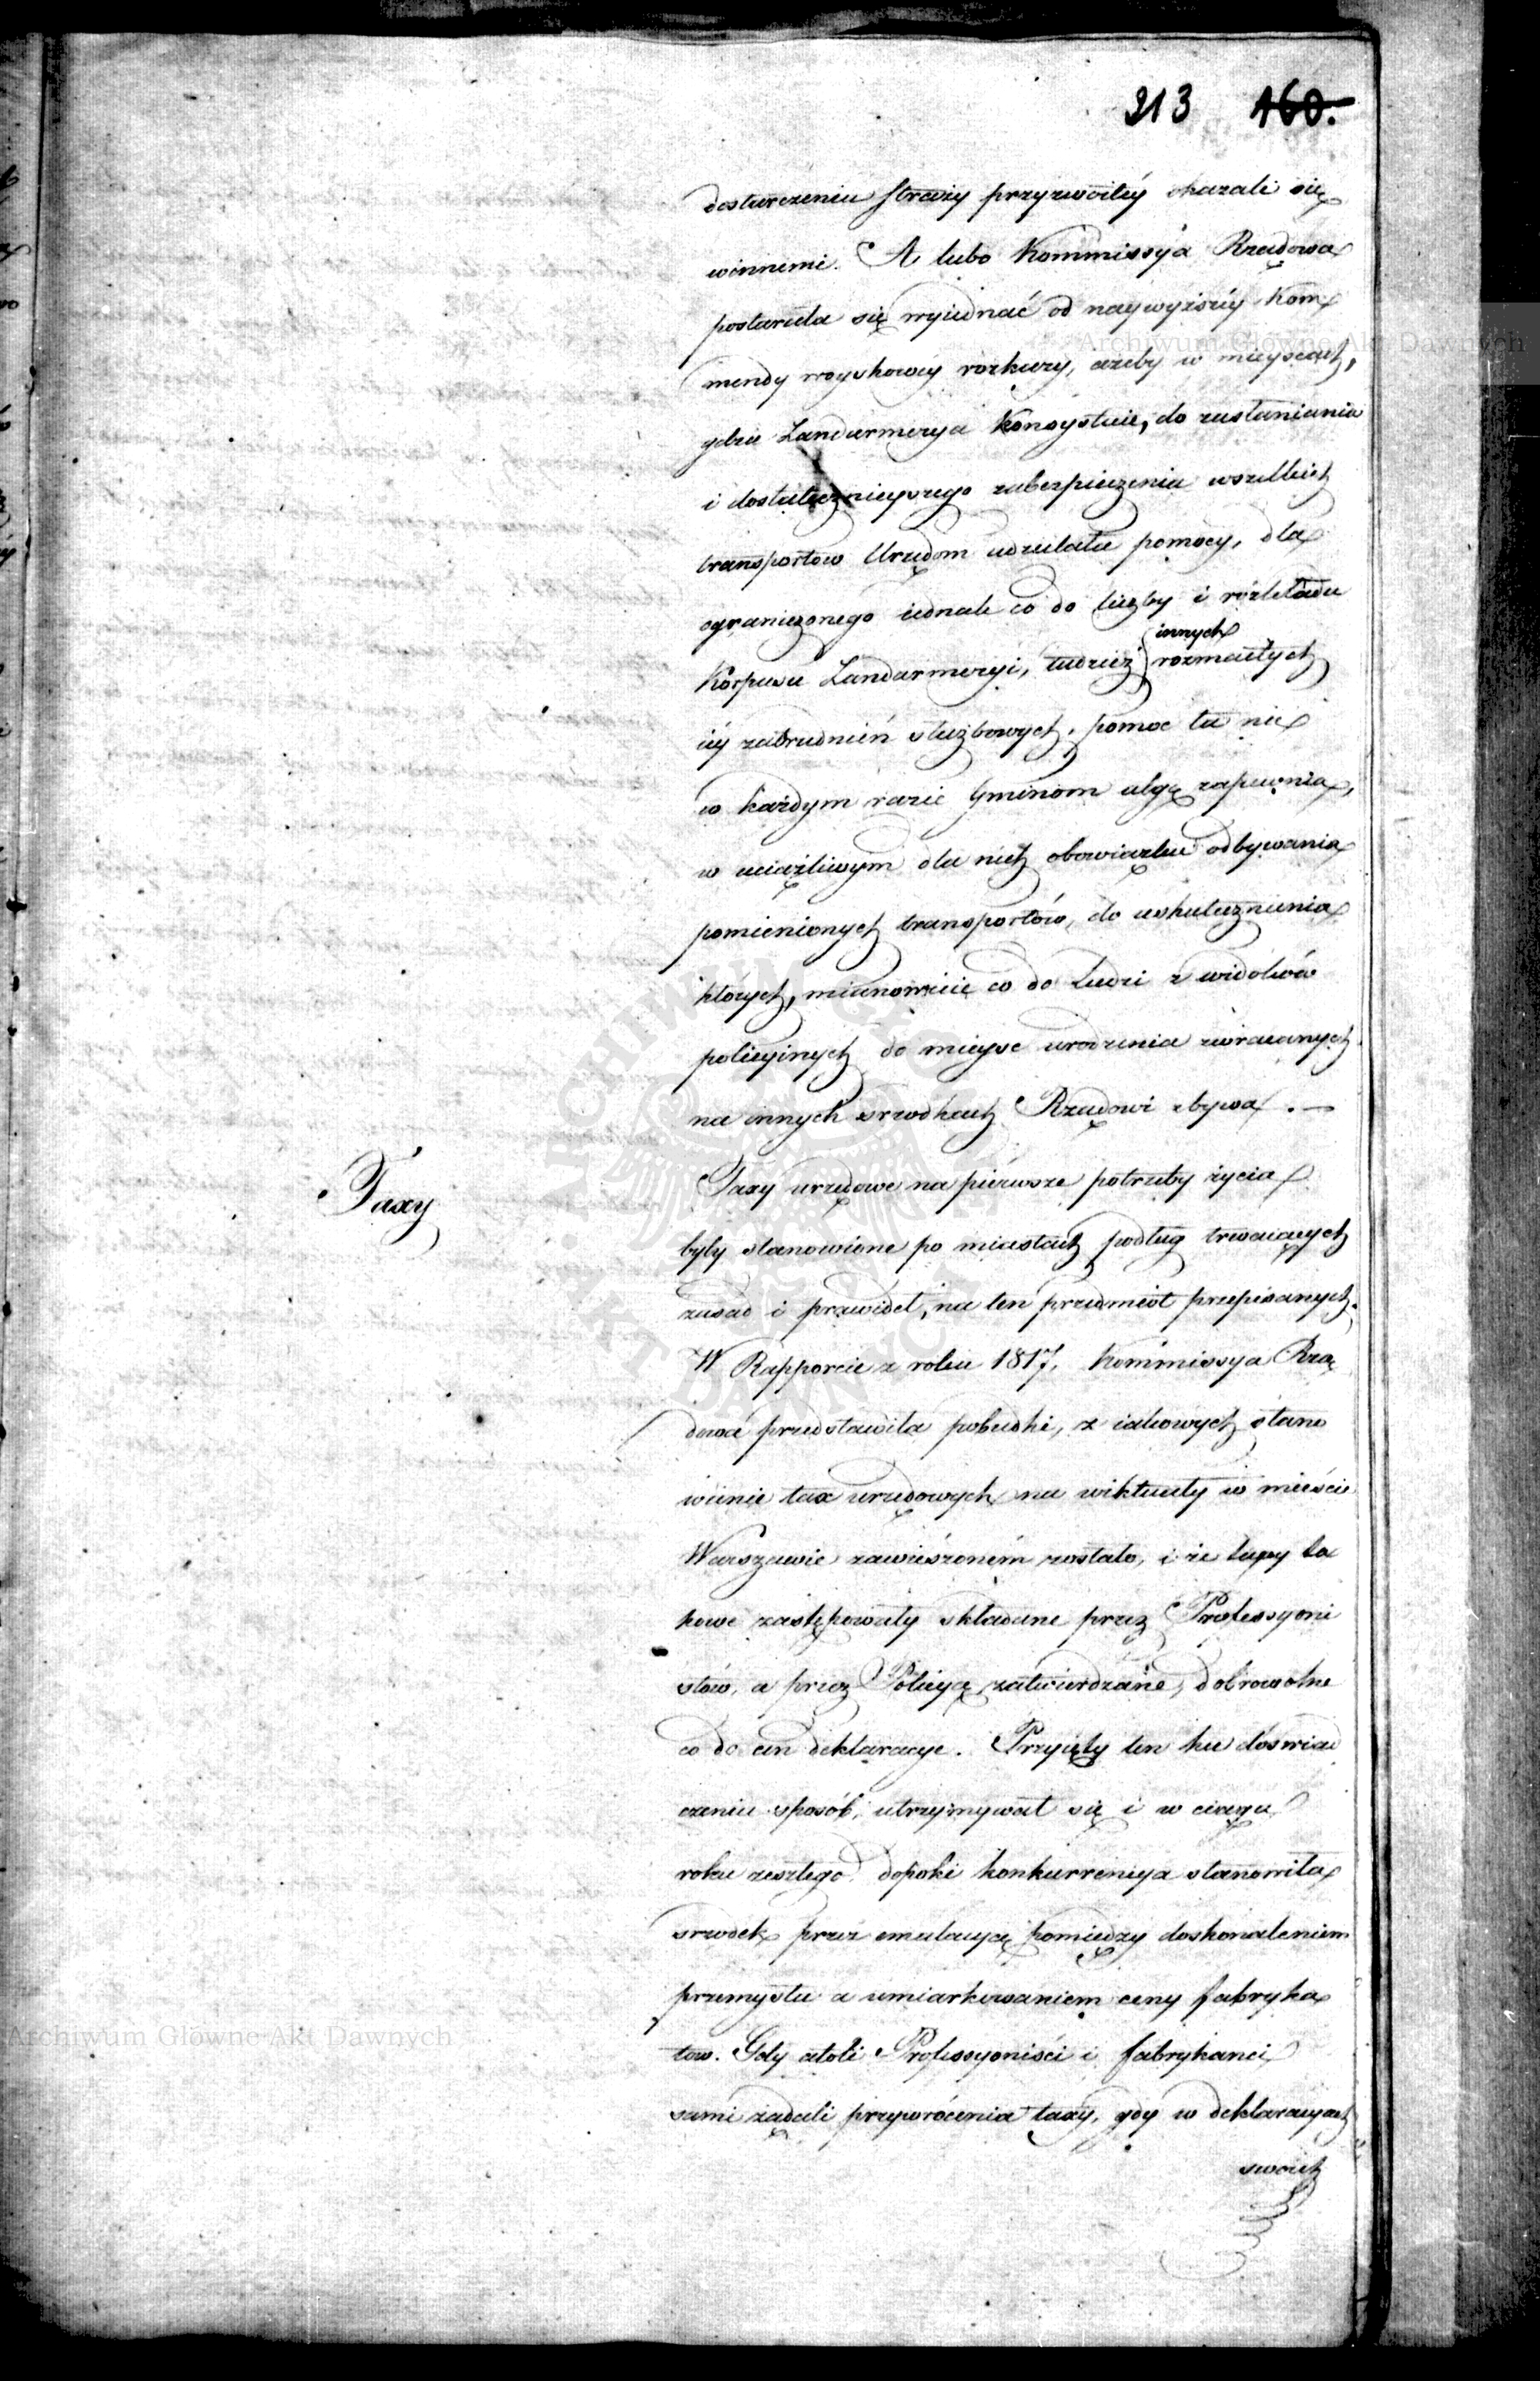 213 160.
dostarczeniu Straży przyzwoitéy okazali się
winnemi. A lubo Kommissya Rządowa
postarała się wyiednać od naywyższéy Kom
mendy woyskowéy rozkazy, ażeby w mieyscach,
gdzie Żandarmerya Konsystuie, do zasłaniania
i dostatecznieyszego zabezpieczenia wszelkich
transportow Urzędom udzielała pomocy, dla
ograniczonego iednak co do liczby i rozkładu
Korpusu Żandarmeryi, tudzież innych rozmaitych
iéy zatrudnień służbowych, pomoc ta nie
w każdym razie Gminom ulgę zapewnia,
w uciążliwym dla nich obowiązku odbywania
pomienionych transportów, do uskutecznienia
których, mianowicie co do Ludzi z widoków
policyinych do mieysc urodzenia zwracanych
na innych srzodkach Rządowi zbywa. —
Taxy
Taxy urzędowe na piérwsze potrzeby życia
były stanowione po miastach podług trwaiących
zasad i prawideł, na ten przedmiot przepisanych.
W Rapporcie z roku 1817, Kommissya Rzą
dowa przedstawiła pobudki, z iakowych stano
wienie tax urzędowych na wiktuały w mieście
Warszawie zawieszoném zostało, i że taxy ta
kowe zastępowały składane przez Professyoni
stów, a przez Policyą zatwierdzane, dobrowolne
co do cen deklaracye. Przyięty ten ku doswiad
czeniu sposób, utrzymywał się i w ciągu
roku zeszłego dopoki konkurrencya stanowiła
srzodek przez emulacyą pomiędzy doskonaleniem
przemysłu a umiarkowaniem ceny fabryka
tow. Gdy atoli Professyoniści i fabrykanci
sami żądali przywrócenia taxy, gdy w deklaracyach
swoich
Archiwum Główne Akt Dawnych
Archiwum Główne Akt Dawnych